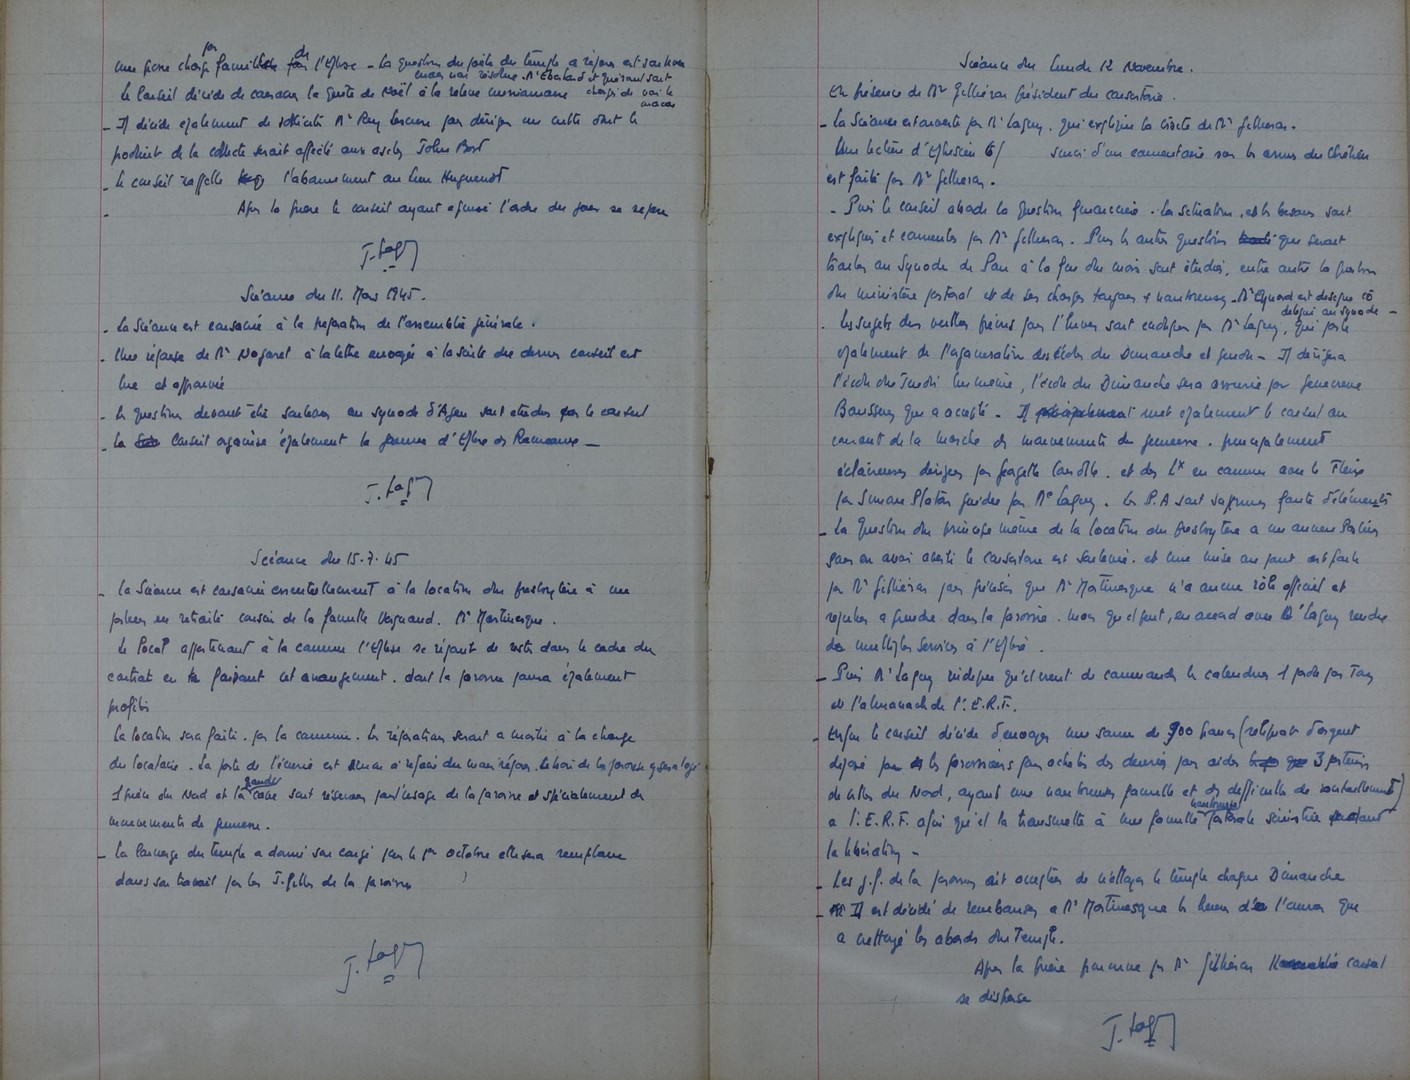 par
de
l'Eglise - La question du poële du temple a réparer est soulevée
mais non résolue. Mr et sont
chargés de voir le
maçon
le Conseil décide de consacrer la quête de Noël à la
- Il décide également de Mr Roy pour diriger un culte dont le
produit de la collecte serait affecté aux asiles John Bost
- le conseil rappelle l'abonnement au Lien Huguenot
- Après la prière le conseil ayant épuisé l'ordre du jour se sépare
Scéance du 11. Mars 1945.
- La Scéance est consacrée à la préparation de l'assemblée générale.
- Une réponse de Mr Nogaret à la lettre envoyée à la suite du dernier conseil est
lue et approuvée
- les questions devant être soulevées au synode d'Agen sont étudiées par le conseil
- le Conseil organise également la journée d'Eglise des Rameaux -
Scéance du 15-7-45
- La Scéance est consacrée essentiellement à la location du presbytère à un
pasteur en retraite cousin de la famille Mr Martinesque.
le local appartenant à la commune l'Eglise se réjouit de rester dans le cadre du
contrat en faisant cet arrangement. dont la paroisse pourra également
profiter
La location sera faite par la commune. Les réparations seront a moitié à la charge
du locataire. La porte de l'écurie est a refaire du mur réparé. Le bois de la paroisse y sera logé
grande
1 pièce du Nord et la cave sont réservées pour l'usage de la paroisse et spécialement des
mouvements de jeunesse.
- La concierge du temple a donné son congé pour le 1er octobre elle sera remplacée
dans son travail par les J. filles de la paroisse
Scéance du Lundi 12 Novembre.
En présence de Mr Gilliéron président du consistoire.
- La Scéance est ouverte par Mr Lagny. qui explique la visite de Mr Gilliéron.
Une lecture d'Ephésiens 6/ suivie d'un commentaire sur les armes du Chrétien
est faite par Mr Gilliéron.
- Puis le conseil aborde la question financière. La situation, et les besoins sont
expliqués et commentés par Mr Gilliéron. Puis les autres questions qui seront
traitées au Synode de Pau à la fin du mois sont étudiées, entre autre la question
du ministère pastoral et de ses charges toujours + nombreuses - Mr est désigné co
délégué au synode -
. Les sujets des veillées prévus pour l'hiver sont indiqués par Mr Lagny, qui parle
également de l'organisation des écoles du Dimanche et jeudi - Il dirigera
l'école du Jeudi lui même, l'école du Dimanche sera assurée par Geneviève
qui a accepté - Il met également le conseil au
courant de la marche des mouvements de jeunesse. principalement
éclaireuses dirigées par Georgette et des en commun avec le
par Simone Platon guidée par Me Lagny. Les P.A sont supprimés faute d'éléments
- La Question du principe même de la location du presbytère a un ancien Pasteur
sans en avoir averti le consistoire est soulevée. et une mise au point est faite
par Mr Gilliéron pour préciser que Mr Martinesque n'a aucun rôle officiel et
régulier a prendre dans la paroisse. mais qu'il peut, en accord avec Mr Lagny rendre
de multiples services à l'Eglise.
- Puis Mr Lagny indique qu'il vient de commander le calendrier 1 parole par Jour
et l'almanach de l'E.R.F.
- Enfin le conseil décide d'envoyer une somme de 900 francs (reliquat d'argent
déposé par les paroissiens pour acheter des denrées pour aider 3 pasteurs
de villes du Nord, ayant une nombreuse famille et des difficultés de ravitaillement)
nombreuse
a l'E.R.F. afin qu'il la transmette à une famille pastorale sinistrée pendant
la libération -
- Les j.f. de la paroisse ont accepté de nettoyer le temple chaque Dimanche
- Il est décidé de rembourser a Mr Martinesque les heures de l'ouvrier qui
a nettoyé les abords du Temple.
Après la prière prononcée par Mr Gilliéron conseil
se disperse